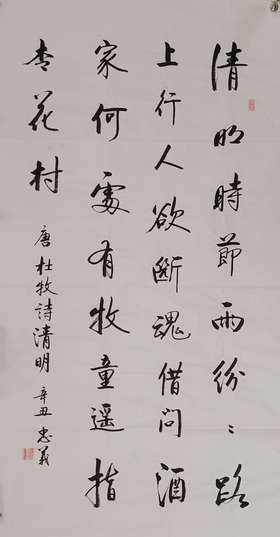 清明時節雨紛〻路
上行人欲斷魂借問酒
家何處有牧童遥指
杏花村
唐杜牧詩清明 辛丑忠義